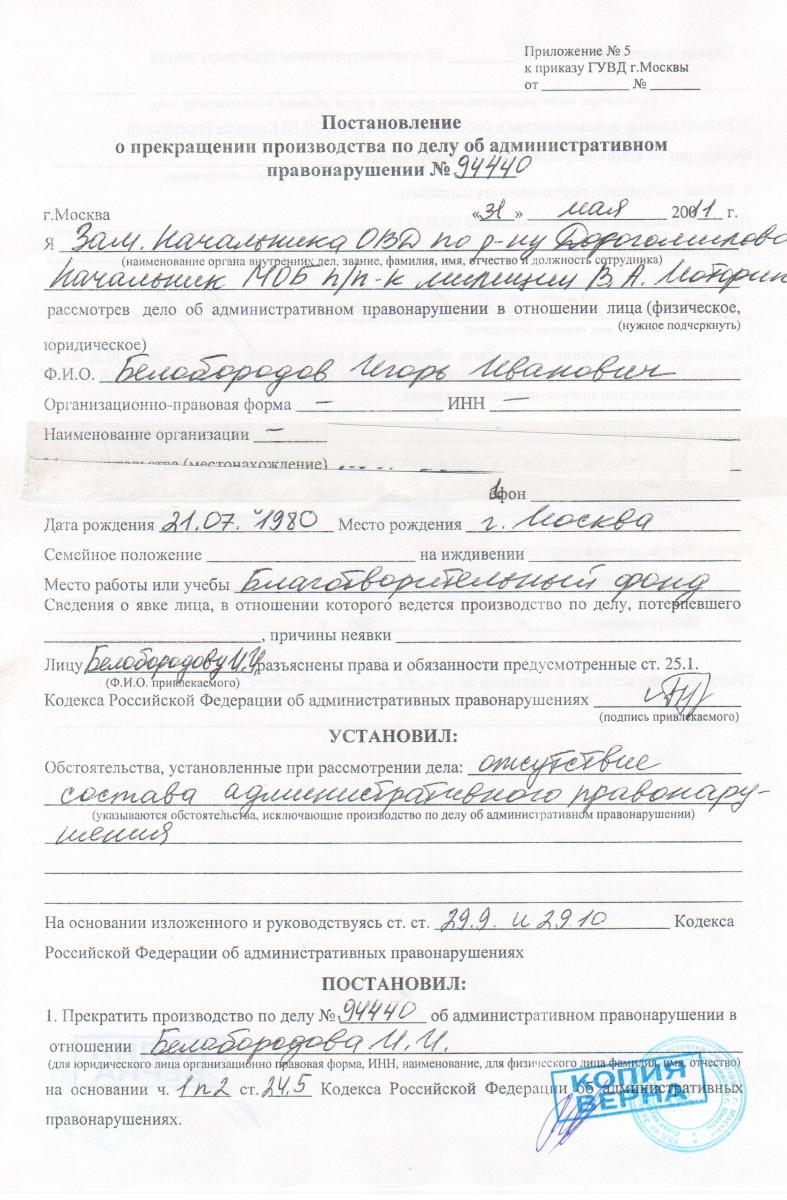 Приложение № 5
к приказу ГУВД г.Москвы
от ____________ № _______
Постановление
о прекращении производства по делу об административном
правонарушении № 94440
г.Москва «31» мая 20011 г.
Я Зам. Начальника ОВД по р-ну Дорогомилово
(наименование органа внутренних дел, звание, фамилия, имя, отчество и должность сотрудника)
Начальник МОБ п/п-к милиции В.А.
рассмотрев дело об административном правонарушении в отношении лица (физическое,
(нужное подчеркнуть)
юридическое)
Ф.И.О. Белобородов Игорь Иванович
Организационно-правовая форма — ИНН —
Наименование организации —
(местонахождение)
фон
Дата рождения 21.07.1980 Место рождения г. Москва
Семейное положение ____________ на иждивении ____________
Место работы или учебы Благотворительный фонд
Сведения о явке лица, в отношении которого ведется производство по делу, потерпевшего
____________, причины неявки ____________
Лицу Белобородову И.И. разъяснены права и обязанности предусмотренные ст. 25.1.
(Ф.И.О. привлекаемого)
Кодекса Российской Федерации об административных правонарушениях
(подпись привлекаемого)
УСТАНОВИЛ:
Обстоятельства, установленные при рассмотрении дела: отсутствие
состава административного правонару-
(указываются обстоятельства, исключающие производство по делу об административном правонарушении)
шения
На основании изложенного и руководствуясь ст. ст. 29.9. и 29.10 Кодекса
Российской Федерации об административных правонарушениях
ПОСТАНОВИЛ:
1. Прекратить производство по делу № 94440 об административном правонарушении в
отношении Белобородова И.И.
(для юридического лица организационно правовая форма, ИНН, наименование, для физического лица фамилия, имя, отчество)
на основании ч. 1 п 2 ст. 24.5 Кодекса Российской Федерации об административных
правонарушениях.
КОПИЯ
ВЕРНА